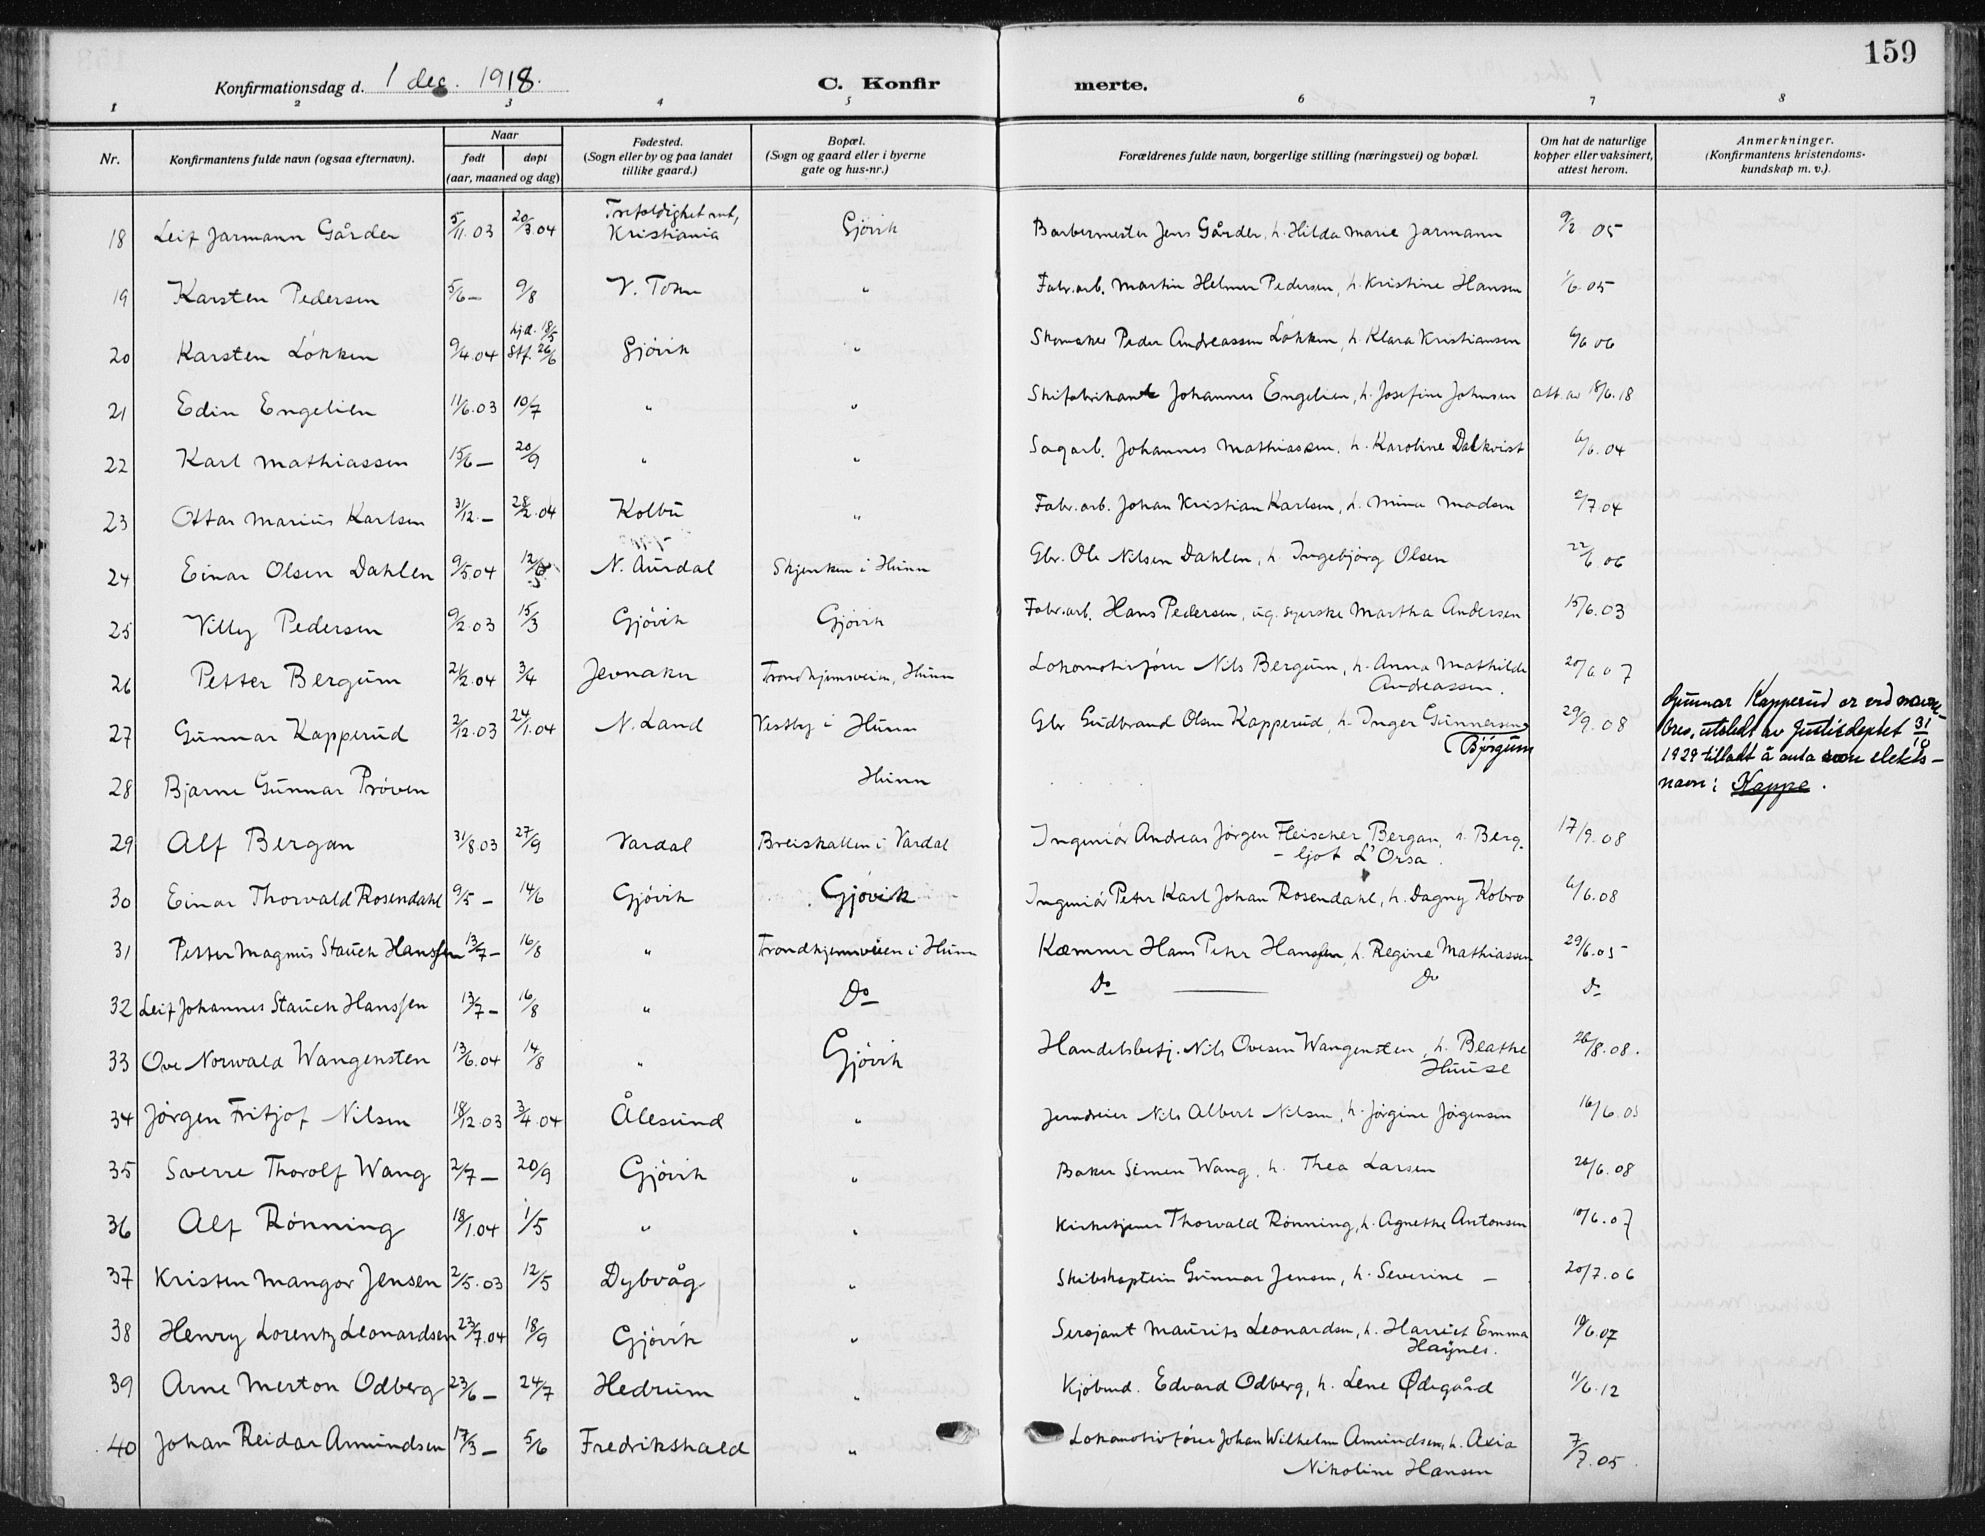 159
Konfirmationsdag d. 1 des. 1918. C. Konfirmerte.
1 2 3 4 5 6 7 8
Nr. Konfirmantens fulde navn (ogsaa efternavn). Naar født døpt (aar, maaned og dag) Fødested. (Sogn eller by og paa landet tillike gaard.) Bopæl. (Sogn og gaard eller i byerne gate og hus-nr.) Forældrenes fulde navn, borgerlige stilling (næringsvei) og bopæl. Om hat de naturlige kopper eller vaksinert, attest herom. Anmerkninger. (Konfirmantens kristendoms-kundskap m. v.).
18 Leif Jarmann Gårder 5/11.03 20/3.04 Trefoldighet mt, Kristiania Gjövik Barbermester Jens Gårder, h. Hilda Marie Jarmann 9/2 05
19 Karsten Pedersen 5/6 — 9/8 V. Toten " Fabr.arb. Martin Helmer Pedersen, h. Kristine Hansen 1/6.05
20 Karsten Lökken 9/4.04 hjd. 18/5 Stf. 26/6 Gjövik " Skomaker Peder Andreassen Lökken, h. Klara Kristiansen 6/6 06
21 Edin Engelien 11/6.03 10/7 " " Skifabrikant Johannes Engelien, h. Josefine Johnsen att. av 18/6.18
22 Karl Mathiassen 15/6 — 20/9 " " Sagarb. Johannes Mathiassen, h. Karoline Dalkvist 6/6.04
23 Ottar Marius Karlsen 31/12.— 28/2.04 Kolbu " Fabr.arb. Johan Kristian Karlsen, h. Mina Madsen 2/7.04
24 Einar Olsen Dahlen 9/5 04 12/5 N. Aurdal Skjenken i Hunn Gbr. Ole Nilsen Dahlen, h Ingebjörg Olsen 22/6.06
25 Villy Pedersen 9/2.03 15/3 Gjövik Gjövik Fabr.arb. Hans Pedersen, ug. syerske Martha Andersen 15/6.03
26 Petter Bergum 2/2.04 3/4 Jevnaker Trondhjemsveien, Hunn Lokomotivförer Nils Bergum, h. Anna Mathilde Andreassen. 20/6.07
27 Gunnar Kapperud 2/12.03 24/1.04 N. Land Vestby i Hunn Gbr Gudbrand Olsen Kapperud, h. Inger Gunnersen Bjørgum 29/9.08
Gunnar Kapperud er ved navne-
brev, utstedt av Justisdeptet 31/10
1929 tilladt å anta som slekts-
navn: Kappe.
28 Bjarne Gunnar Pröven Hunn
29 Alf Bergan 31/8.03 27/9 Vardal Breiskallen i Vardal Ingeniör Andreas Jörgen Fleischer Bergan, h. Berg-
- ljot L'Orsa. 17/9.08
30 Einar Thorvald Rosendahl 9/5 — 14/6 Gjövik Gjövik Ingeniör Peter Karl Johan Rosendahl, h. Dagny Kobro 6/6.08
31 Petter Magnus Stauch Hanssen 13/7 — 16/8 " Trondhjemsveien i Hunn Kæmner Hans Peter Hanssen, h. Regine Mathiassen 29/6.05
32 Leif Johannes Stauch Hanssen 13/7 — 16/8 " Do Do — Do Do
33 Ove Norwald Wangensten 13/6.04 14/8 " Gjövik Handelsbetj. Nils Ovesen Wangensten, h. Beathe Huuse 26/8.08.
34 Jörgen Fritjof Nilsen 18/12.03 3/4.04 Ålesund " Jerndreier Nils Albert Nilsen, h. Jörgine Jörgensen 16/6.05
35 Sverre Thorolf Wang 2/7 — 20/9 Gjövik " Baker Simen Wang, h. Thea Larsen 26/6.08
36 Alf Rönning 18/1.04 1/5 " " Kirketjener Thorvald Rönning, h. Agnethe Antonsen 10/6.07
37 Kristen Mangor Jensen 2/5.03 12/5 Dybvåg " Skibskaptein Gunnar Jensen, h. Severine — 20/7.06
38 Henry Lorentz Leonardsen 23/7.04 18/9 Gjövik " Sersjant Maurits Leonardsen, h. Harriet Emma Haynes. 10/6.07
39 Arne Merton Odberg 23/6 — 24/7 Hedrum " Kjöbmd. Edvard Odberg, h. Lene Ødegård 11/6.12
40 Johan Reidar Amundsen 17/3 — 5/6 Fredrikshald " Lokomotivförer Johan Wilhelm Amundsen, h. Axia
Nikoline Hansen 7/7.05